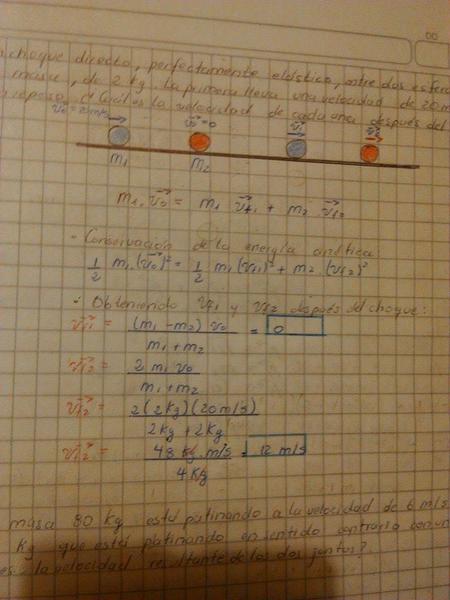 choque directo, perfectamente elástico, entre dos esfera
masa, de 2 kg. La primera lleva una velocidad de 20 m
reposo. ¿Cuál es la velocidad de cada una después del
v₀ = 20 m/s v₀ = 0 v₁ v₂
m₁ m₂
m₁ . v₀ = m₁ vf₁ + m₂ vf₂
· Conservación de la energía cinética
1/2 m₁ (v₀)² = 1/2 m₁ (vf₁)² + m₂ (vf₂)²
· Obteniendo vf₁ y vf₂ después del choque:
vf₁ = (m₁ - m₂) v₀ / m₁ + m₂ = 0
vf₂ = 2 m₁ v₀ / m₁ + m₂
vf₂ = 2(2 kg)(20 m/s) / 2 kg + 2 kg
vf₂ = 48 kg . m/s / 4 kg = 12 m/s
masa 80 kg está patinando a la velocidad de 6 m/s
kg que está patinando en sentido contrario con un
es la velocidad resultante de los dos juntos?